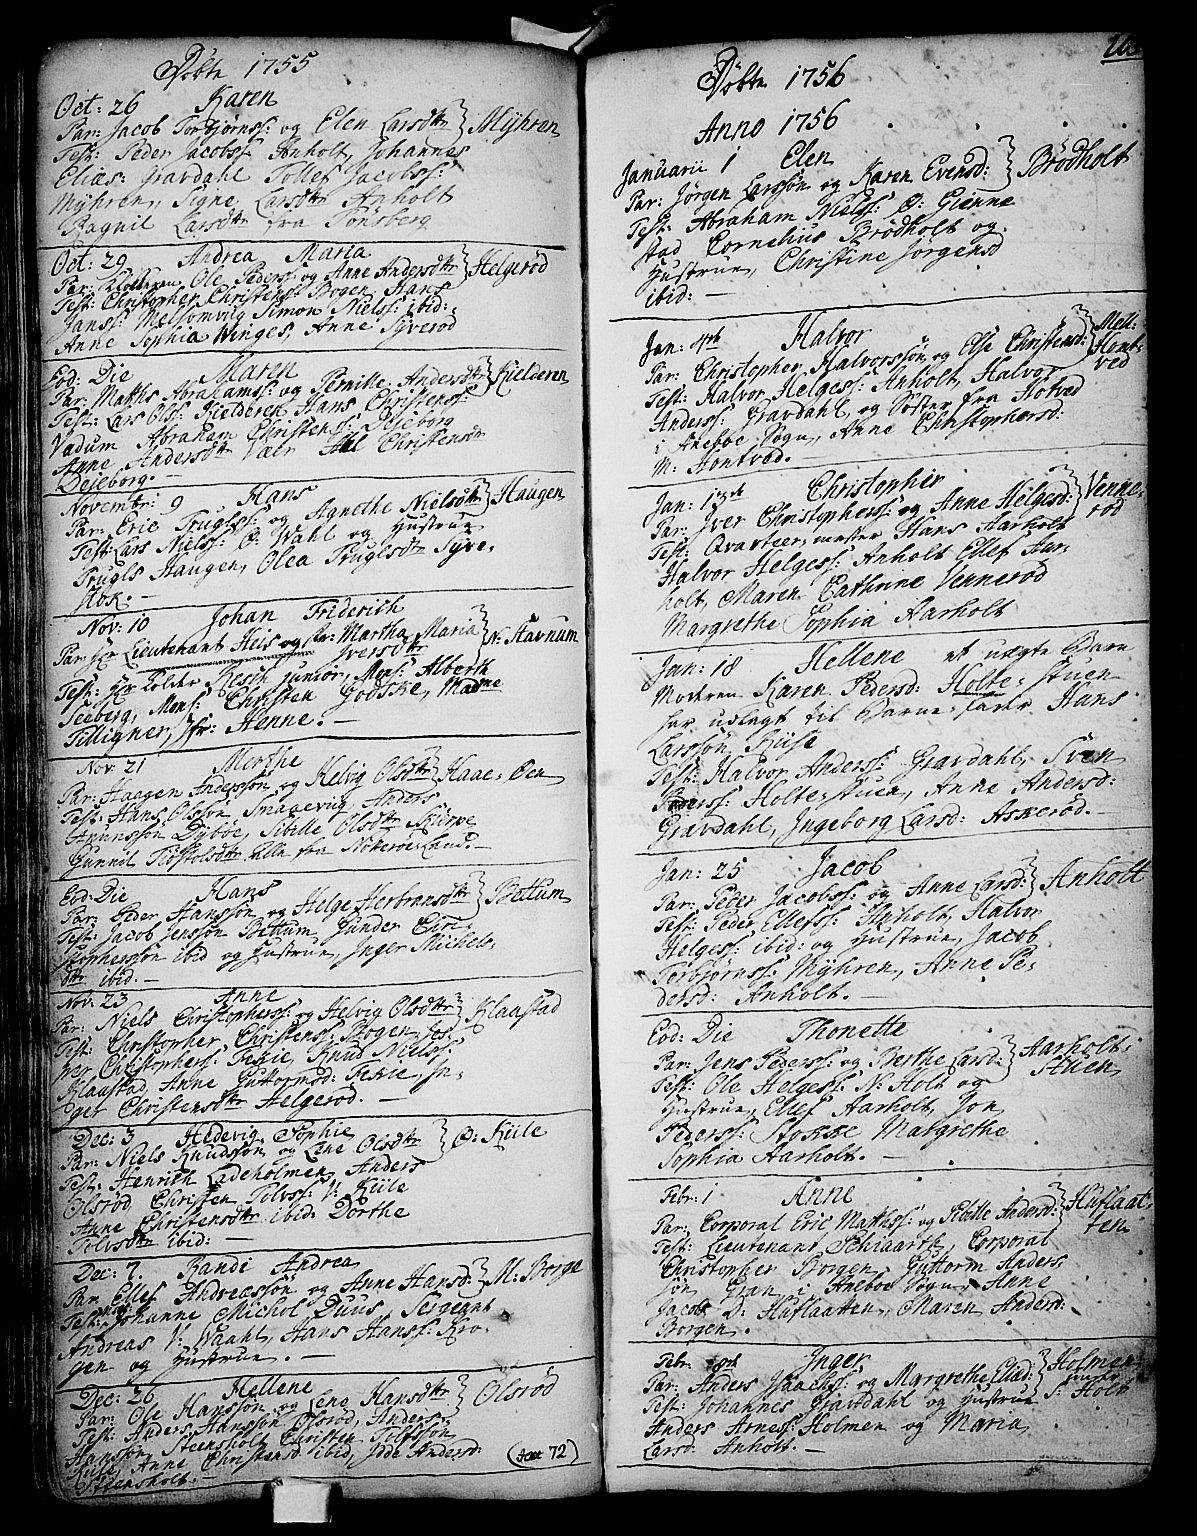 Døbte 1755
Oct: 26 Karen
Par: Jacob Torbjørnss: og Elen Larsdtr Mÿhren
Test: Peder Jacobss: Anholt, Johannes
Elias: Gravdahl Tollef Jacobss:
Mÿhren, Signe Larsdtr Anholt
Ragnil Larsdtr fra Tønsberg
Oct: 29 Andrea Maria
Par: Ole Peders: og Anne Andersdtr Helgerød
Test: Christopher Christens: Bogen, Hans
Janss: Mellomvig Simon Nielss: ibid:
Anne Sophia Winges, Anne Syverød
Eod: Die Maren
Par: Matths Abrahamss: og Pernille Andersdtr Kielderen
Test: Lars Olss: Kielderen Hans Christenss:
Vadum Abraham Christens: Deieborg
Anne Andersdtr Vær Christensdtr
Deieborg. —
Novembr: 9 Hans
Par: Eric Truglss: og Agnethe Nielsdtr Haugen
Test: Lars Nielss: Ø: Wahl og Hustrue
Trugls Haugen, Olea Truglsdtr Syve-
stok. —
Nov: 10 Johan Friderich
Par: Hr Lieutenant Heis og fr: Martha Maria N: Havnum
Iversdtr
Test: Hr Tolder Resch junior, Mons: Alberth
Seeberg, Mons: Christen Godske, Madme
Tilligner, Jfr: Henne. —
Nov: 21 Merthe
Par: Haagen Anderssøn og Helvig Olsdtr Haae-Øen
Test: Hans Olssøn Snagevig, Anders
Amundssøn Dybøe, Sibille Olsdtr Skürve
Gunnil Tiøstolsdtr alle fra Nøterøe-Land. —
Eod: Die Hans
Par: Peder Hanssøn og Helge Herbransdtr Bettum
Test: Jacob Jenssøn Bettum Gunder Chri-
stopherssøn ibid og Hustrue, Inger Michels-
dtr ibid. —
Nov: 23 Anne
Par: Niels Christopherss: og Helvig Olsdtr Klaastad
Test: Christopher Christenss: Bogen Jes-
per Christopherss: Texie, Knud Nielss:
Klaastad, Anne Guttormsd: Texie, In-
get Christensdtr Helgerød. —
Dec: 3 Hedevig Sophie
Par: Niels Knudssøn og Lene Olsdtr Ø: Kiile
Test: Henrich Ladeholmen Anders
Olsrød Christen Tolvss: V: Kiile
Anne Christensdtr ibid: Dorthe
Tolvsdtr ibid: —
Dec: 7 Randi Andrea
Par Ellef Andreassøn og Anne Hansd: M: Borge
Test: Johanne Michol Duus, Sergeant
Andreas V: Waahl, Hans Hanss: Kro-
gen og Hustrue. —
Dec: 26 Hellene
Par: Ole Hanssøn og Lene Hansdtr Olsrød
Test: Anders Hanssøn Olsrød, Anders
Hanssøn Steensholt Christen Tolfssøn
Kiile, Anne Christensd ibid, Idde Andersd:
Steensholt.
72
Døbte 1756
Anno 1756
Januarii 1 Elen
Par: Jørgen Larssøn og Karen Evensd: Brødholt
Test: Abraham Nielss: Ø: Gienne
stad Cornelius Brødholt og
Hustrue, Christine Jørgensd
ibid: —
Jan: 4th Halvor
Par: Christopher Halvorssøn og Else Christensd: Mell:
Hont-
ved
Test: Halvor Helgess: Anholt, Halvor
Anderss: Gravdahl, og Søster fra Hotved
i Aneboe Sogn, Anne Christophersd:
M: Hontvæd.
Jan: Christopher
Par: Iver Christopherss: og Anne Helgesd: Venne-
rød
Test: Qvarteermester Hans Aarholt
Halvor Helgess: Anholt Ellef Aar-
holt, Maren Cathrine Vennerød
Margrethe Sophia Aarholt
Jan: 18 Hellene et uægte Barn
Moderen Karen Pedersd: Holte-stuen
har udlagt til Barne fader Hans
Larssøn Kiise
Test: Halvor Anderss: Gravdahl, Sven
Holte stuen, Anne Andersd:
Gravdahl, Ingeborg Larsd: Askerød. —
Jan: 25 Jacob
Par: Peder Jacobss: og Anne Larsd: Anholt
Test: Peder Ellefss: Anholt, Halvor
Helgess: ibid: og Hustrue, Jacob
Torbjørnss: Mÿhren, Anne Pe-
dersd: Anholt. —
Eod: Die Thonette
Par: Jens Pederss: og Berthe Larsd: Aarholt-
Ejien
Test: Ole Helgess: N: Holt og
Hustrue, Ellef Aarholt, Jon
Pederss: Stokke Margrethe
Sophia Aarholt. —
Febr: 1 Anne
Par: Corporal Eric Mathss: og Sibille Andersd: Huflaat-
ten
Test: Lieutenant Schiaartz, Corporal
Christopher Borgen, Guttorm Anders
søn Gran i Aneboe Sogn, Anne
Jacobs D: Huflaatten, Maren Andersd:
Borgen.
Febr: Inger
Par: Anders Isaachss: og Margrethe Ellid: Holmen
under
S: Holt
Test: Johannes Gravdahl og Hustrue
Anders Arness: Holmen og Maria
Larsd: Anholt. —